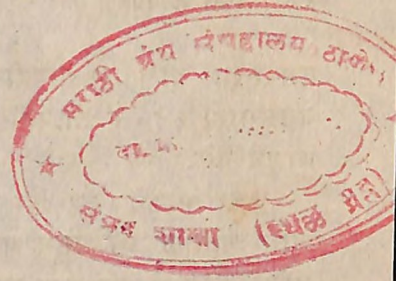 मराठी ग्रंथ संग्रहालय ठाणे.
संदर्भ शाखा (स्थळ प्रत)